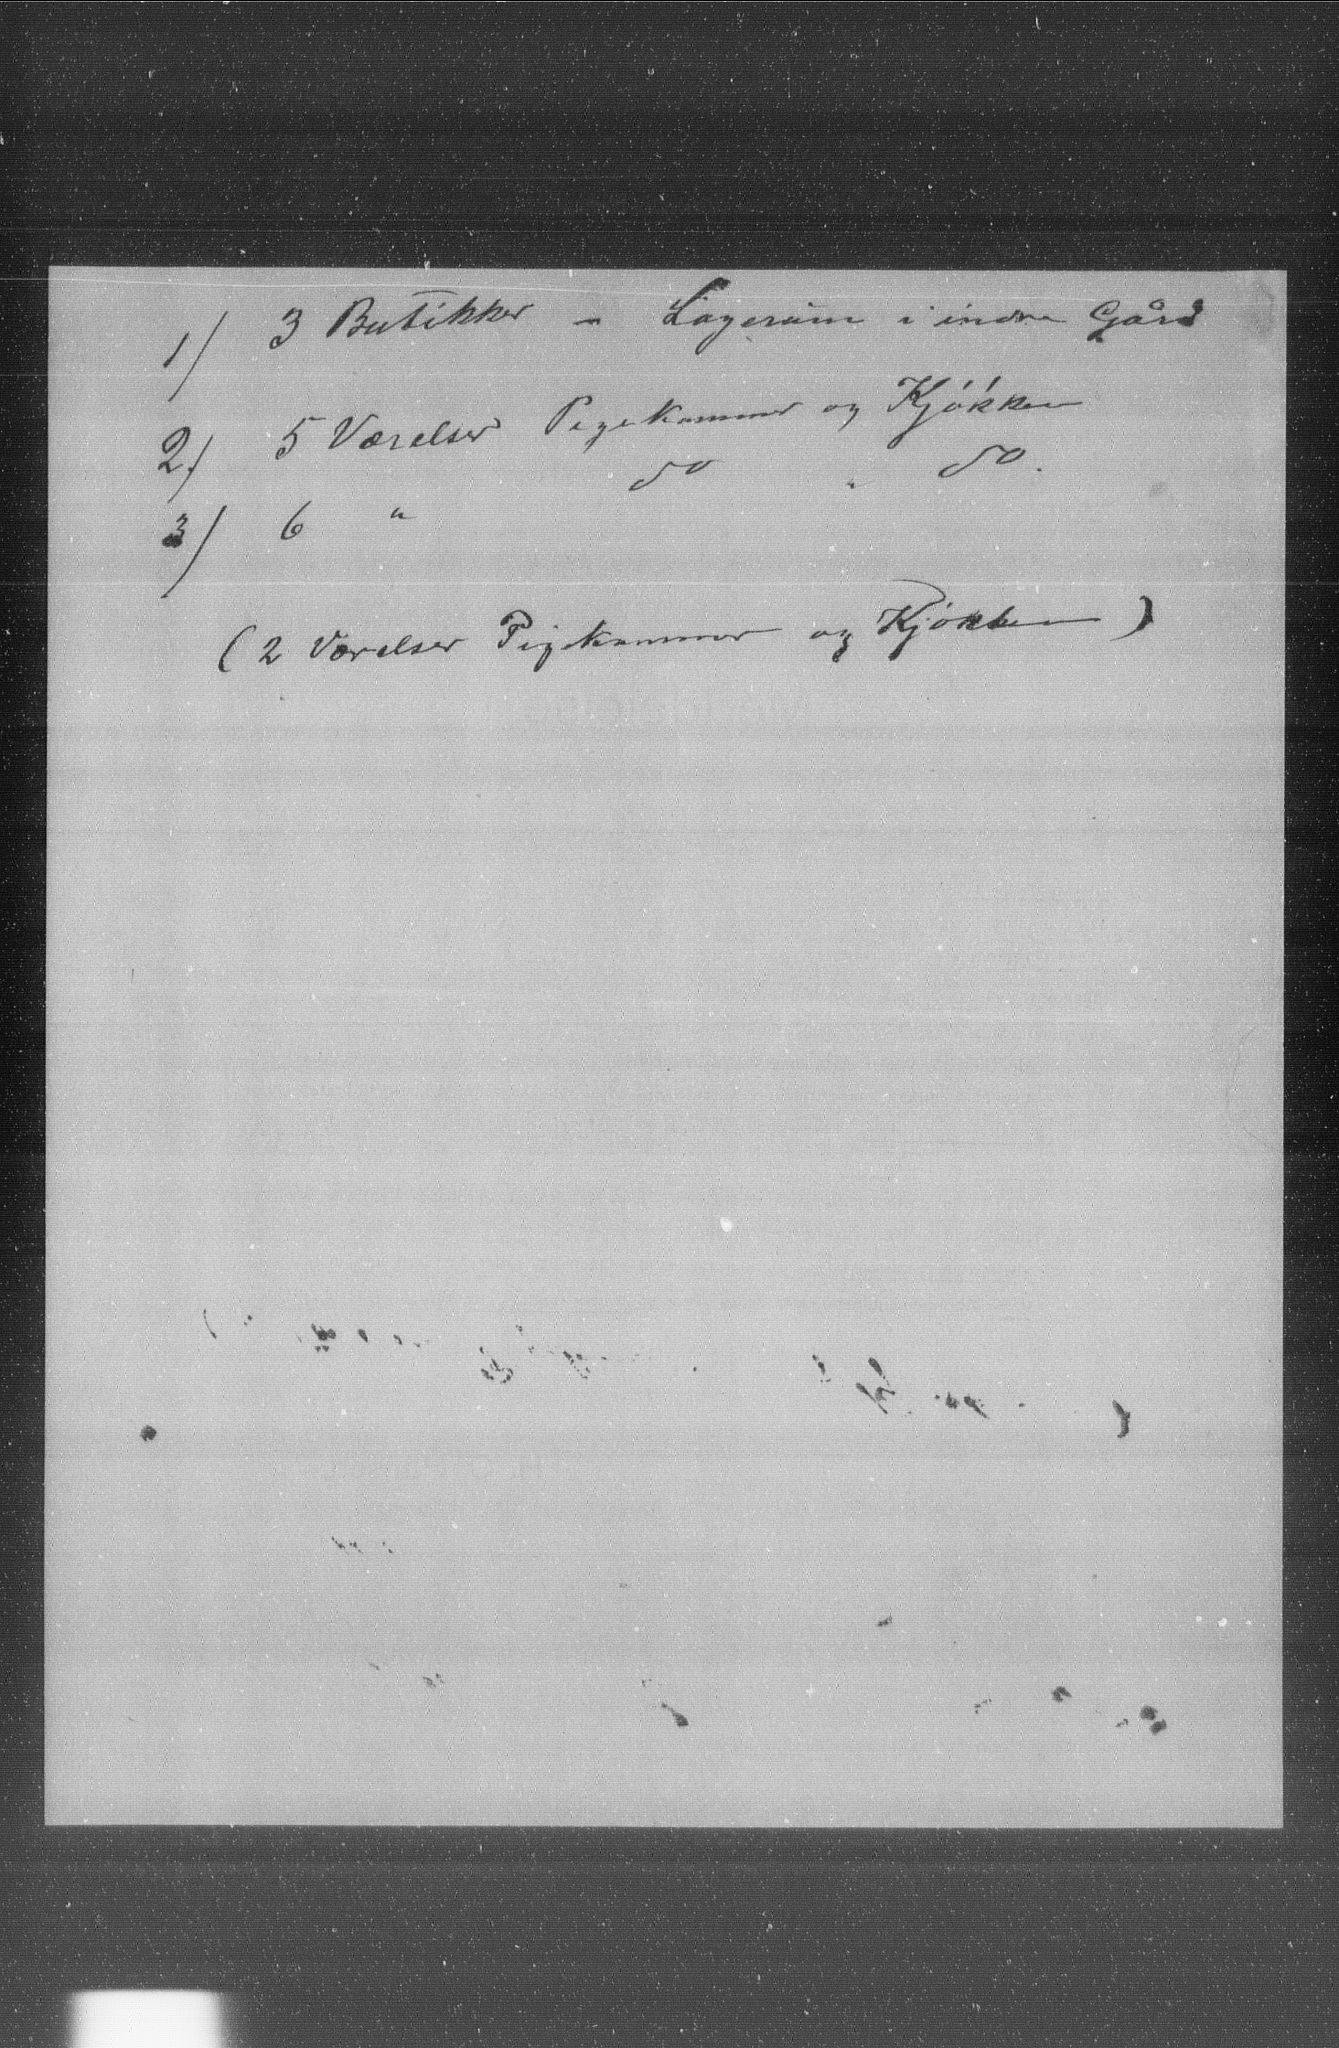 1/ 3 Butikker - Lagerum i indre Gård
2/ 5 Værelser Pigekammer og Kjøkken
3/ 6 " do " do.
(2 Værelser Pigekammer og Kjøkken)